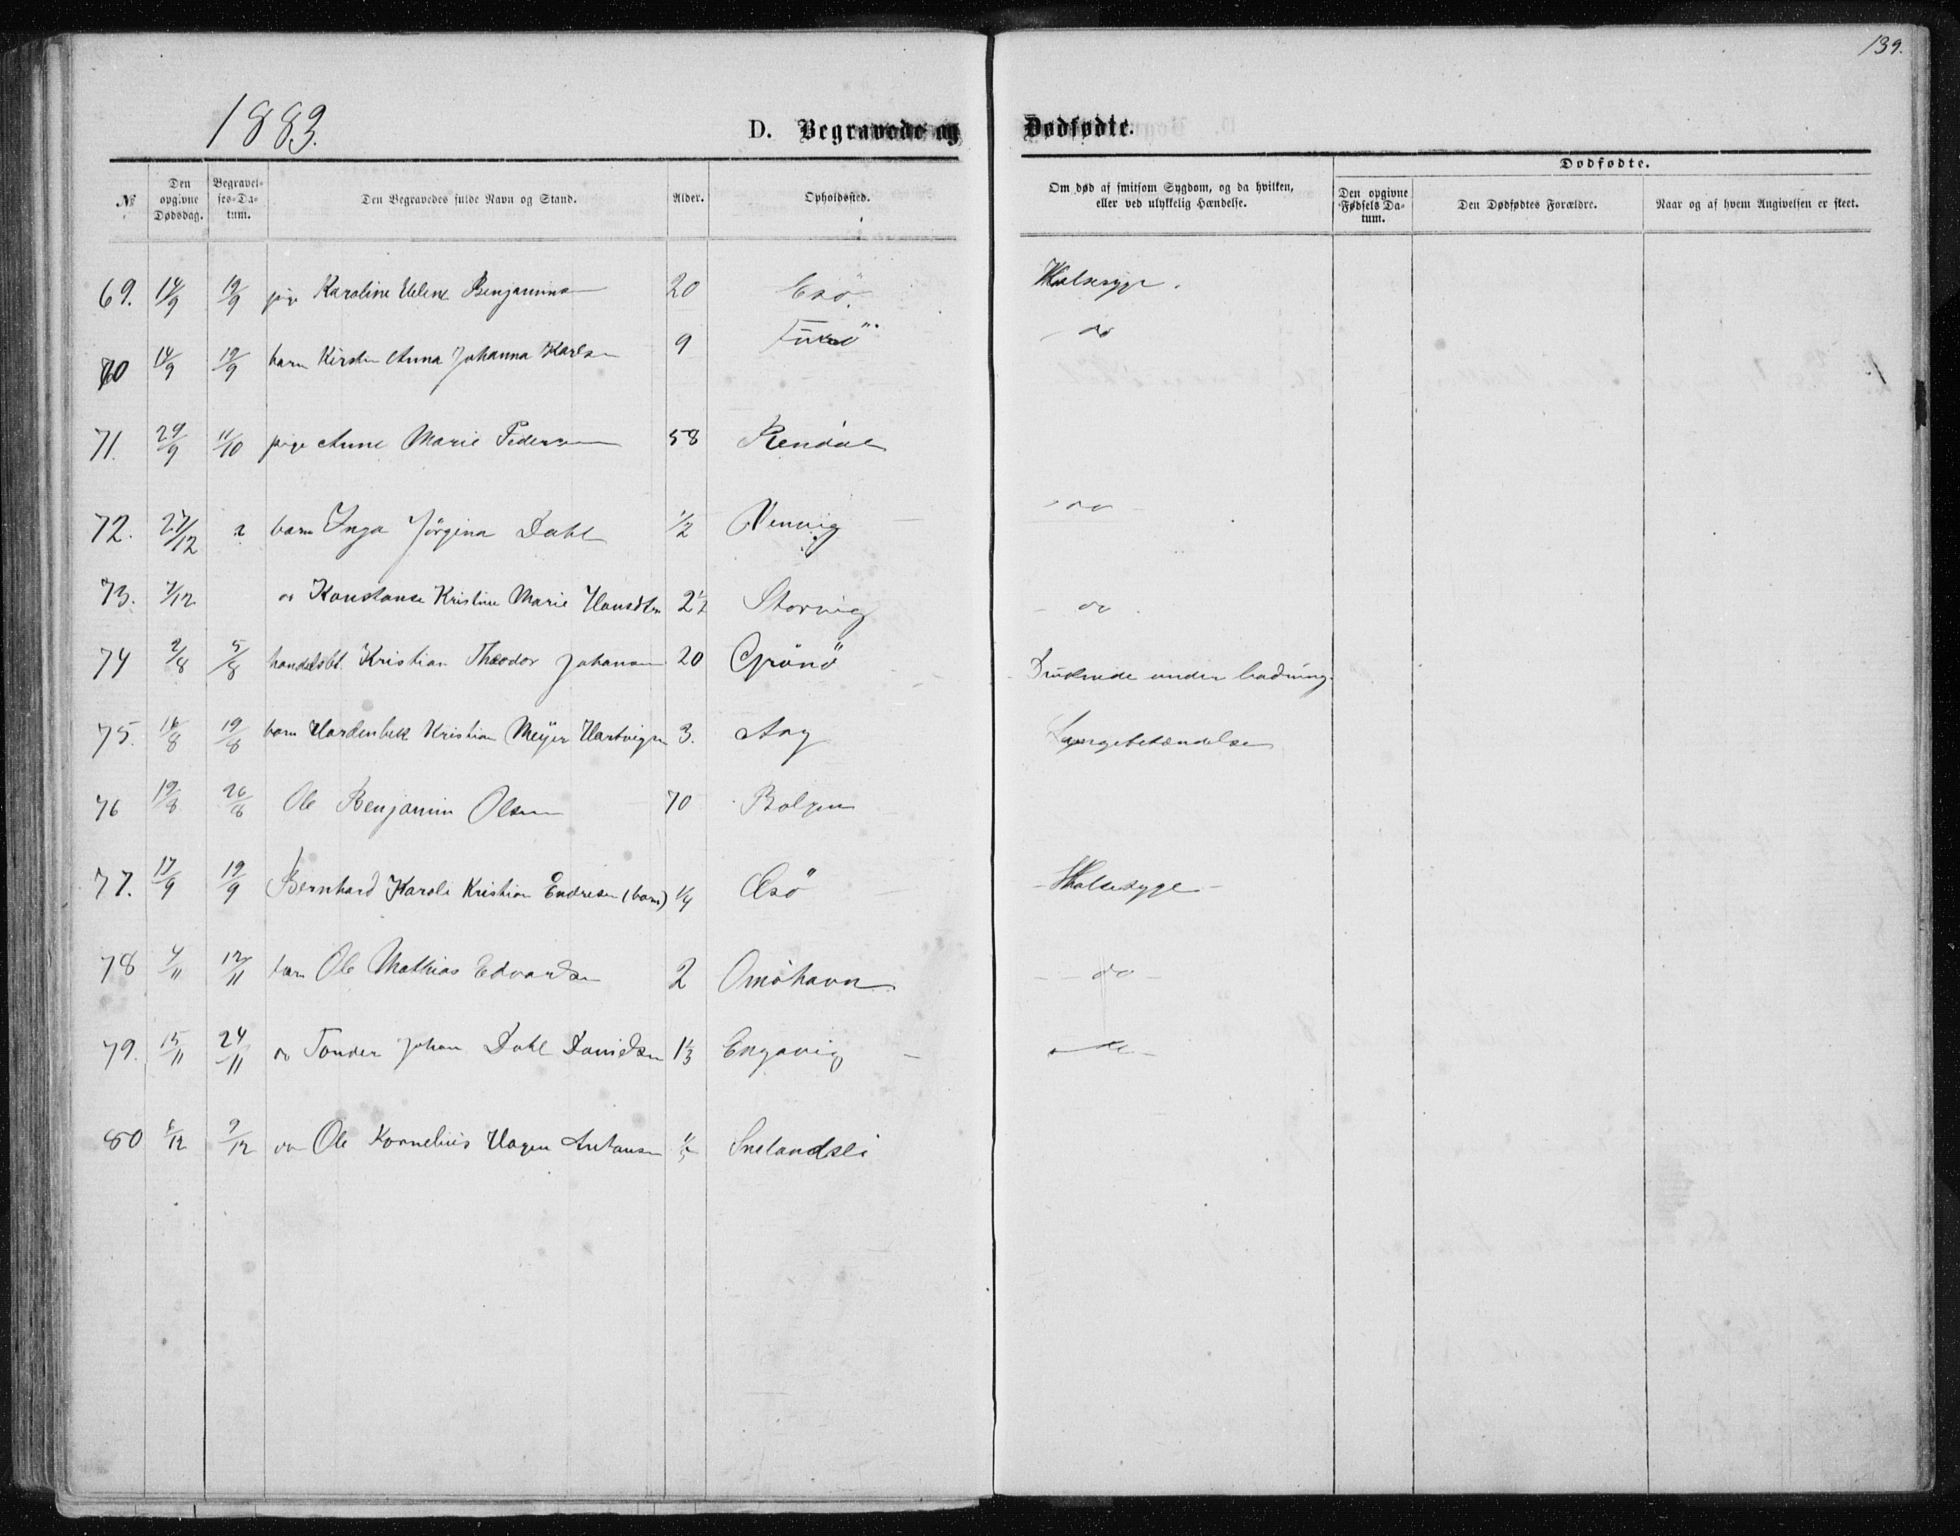 139.
1883.
D. Begravede og Dødfødte.
Dødfødte.
№ Den opgivne Dødsdag. Begravelses-Datum. Den Begravedes fulde Navn og Stand. Alder. Opholdssted. Om død af smitsom Sygdom, og da hvilken, eller ved ulykkelig Hændelse. Den opgivne Fødsels Datum. Den Dødfødtes Forældre. Naar og af hvem Angivelsen er skeet.
69. 14/9 19/9 pige Karoline Elene Benjaminsen 20 Esö. Halsesyge.
70 14/9 19/9 barn Kirsten Anna Johanna Karlsen 9 do
71. 29/9 11/10 pige Anne Marie Pedersen 58 Rendal
72. 27/12 barn Inga Jörgina Dahl 1/2 Nenvig do
73. 7/12 do Konstanse Kristine Marie Hansdtr 2 1/2 Storvig do
74 2/8 5/8 handelsbt. Kristian Theodor Johansen 20 Grönö Druknede under badning.
75. 16/8 19/8 barn Hardenbek Kristian Meÿer Hartvigsen 3. Aag Lungebetændelse
76 19/8 26/8 Ole Benjamin Olsen 70 Bolgen
77. 17/9 19/9 Bernhard Karoli Kristian Endresen (barn) 1/4 Esö Halsesyge
78 4/11 12/11 barn Ole Mathias Edvardsen 2 Omöhavn do
79. 15/11 24/11 do Tonder Johan Dahl Danielsen 1 1/3 Engavig do
80 /12 9/12 do Ole Kornelius Hagen Antonsen Snelandsli